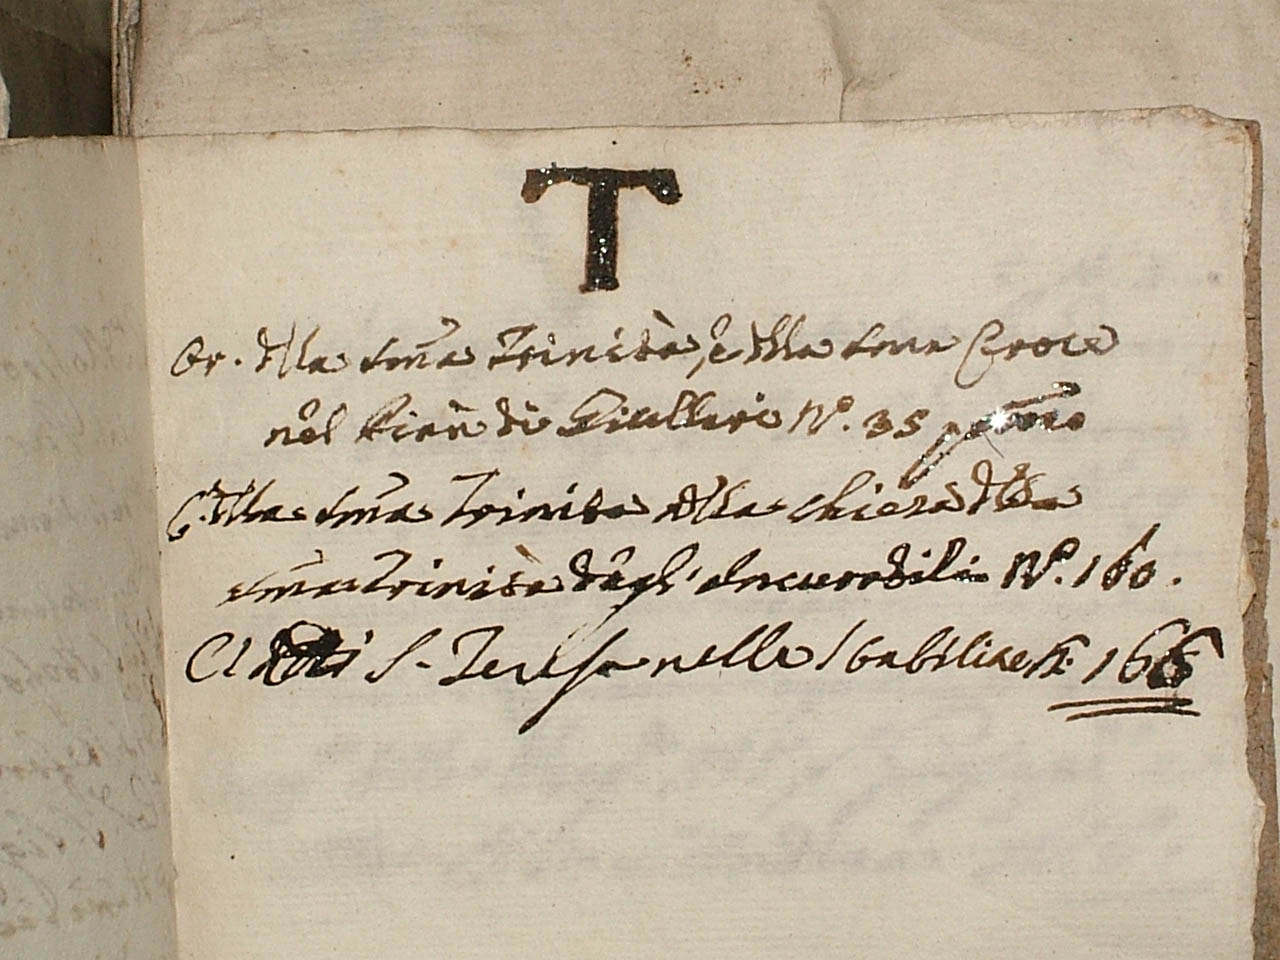 T
Or. della Sma Trinità, e della Sma Croce
nel Rione di N.º 35
C. della Sma Trinità della chiesa della
Sma Trinità degl' Incurabili N.º 160.
C S. Teresa nelle 166